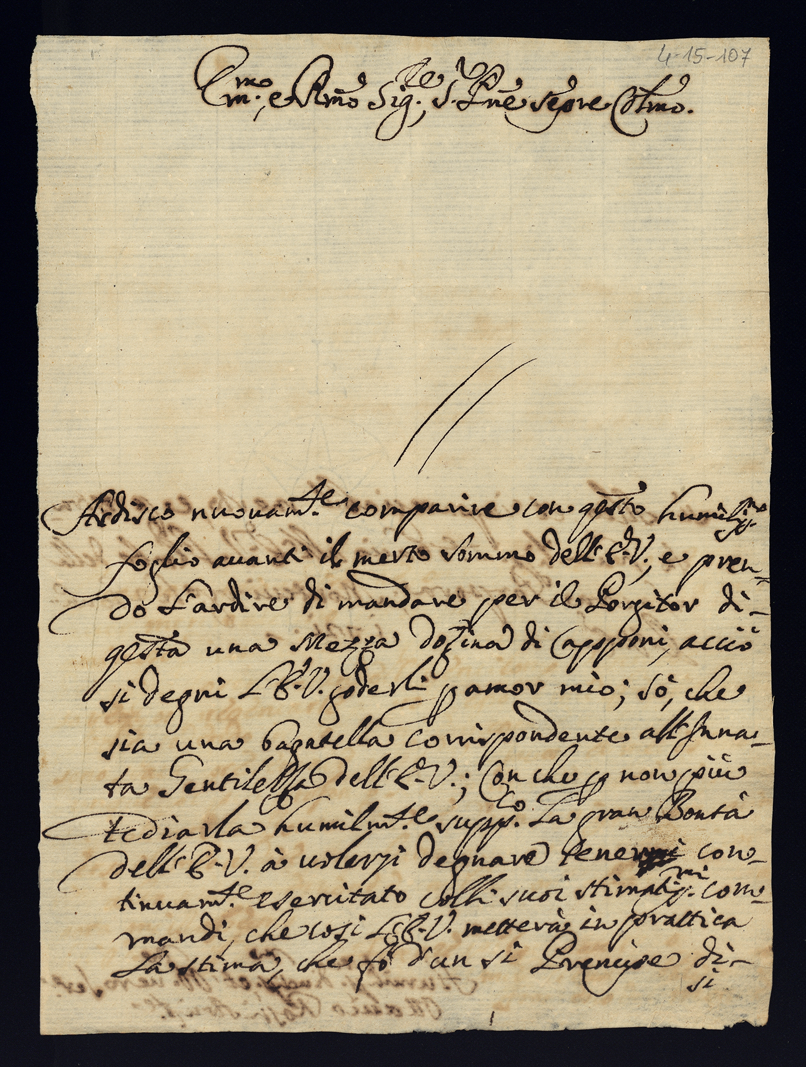 4-15-107
Em.mo, e R.mo Sig.re, S.r P.ne sepre Col.mo.
Ardisco nuovam.te comparire con qsto humiliss.o
foglio avanti il merto sommo dell'E.V., e pren-
do l'ardire di mandare per il Porgitor di-
qsta una Mezza dozina di Capponi, acciò
si degni L'E.V. goderli p amor mio; sò, che
sia una bagatella corrispondente all'Inna-
ta Gentilezza dell'E.V.; Con che p non più
tediarla humilm.te supp.co La gran Bontà
dell'E.V. à volersi degnare tenermi con-
tinuam.te esercitato colli suoi stimatiss.mi com-
mandi, che così L'E.V. metterà in prattica
La stima, che fò d'un si Prencipe di-
si